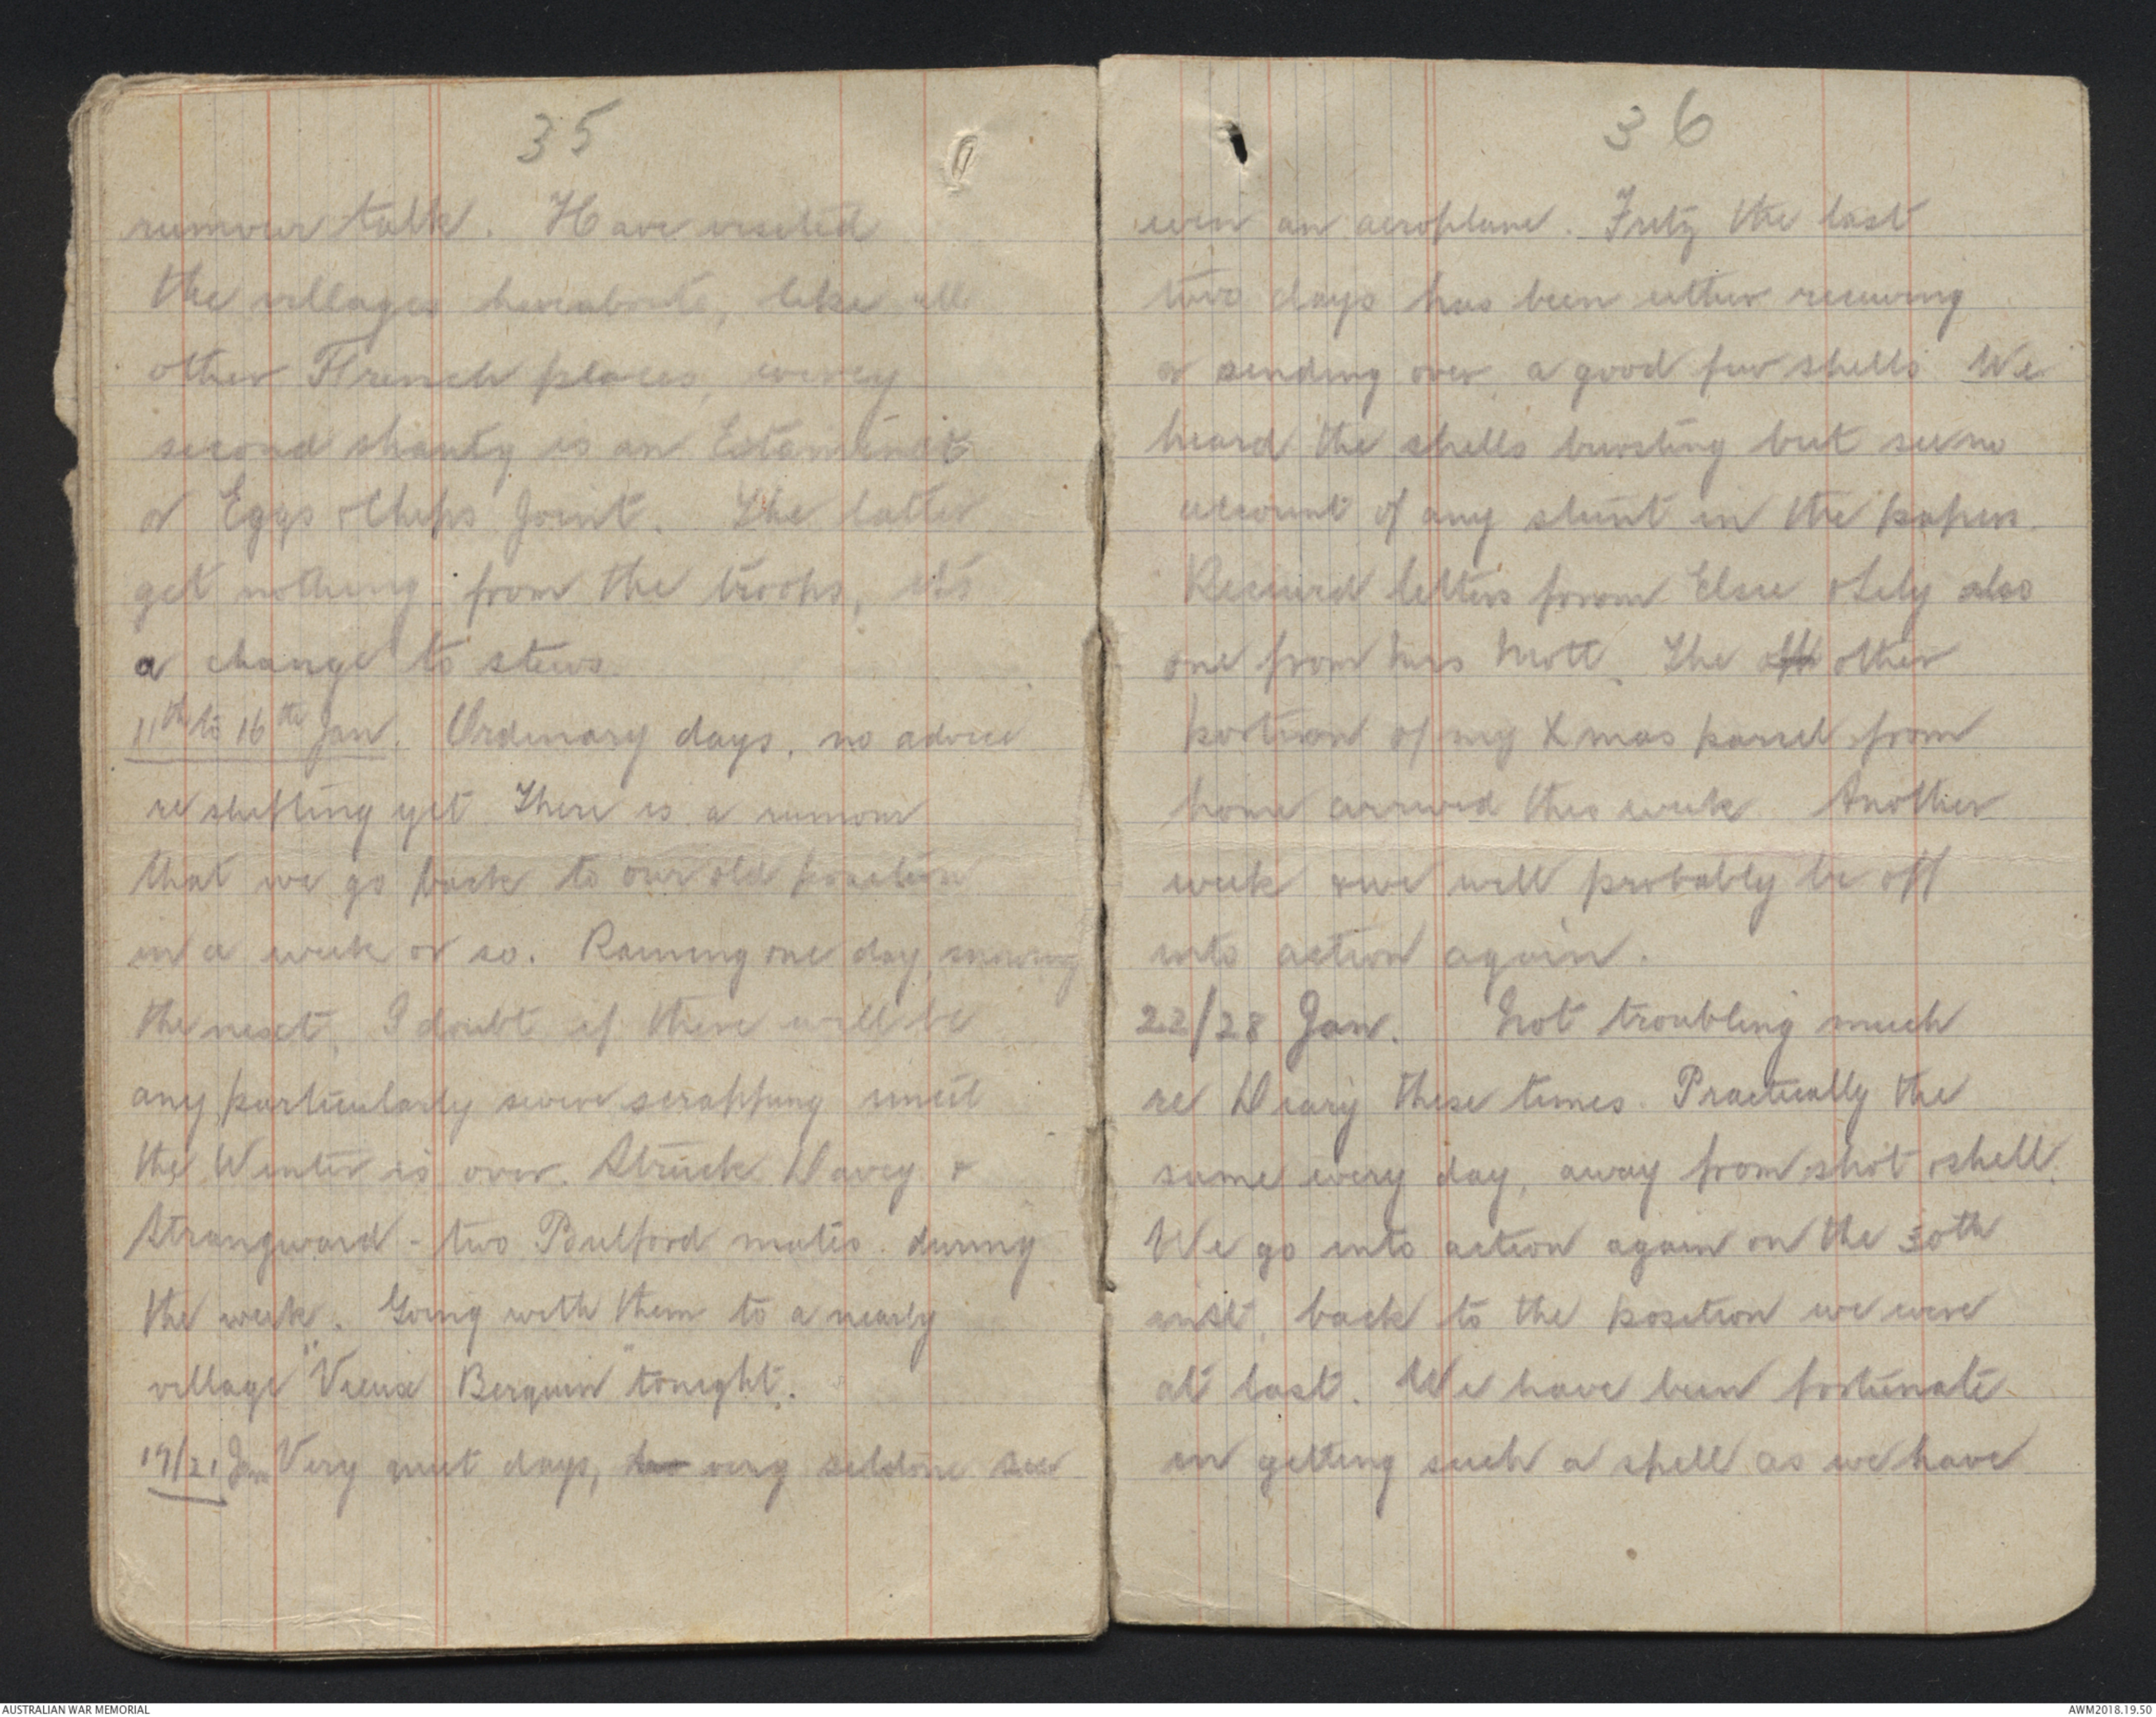 35
rumour talk. Have visited
the villages hereabouts, like all
other French places, every
second shanty is an Estaminet
or Eggs & Chips Joint. The latter
get nothing from the troops, its
a change to stews.
11th to 16th Jan. Ordinary days, no advice
re shifting yet. There is a rumour
that we go back to our old position
in a week or so. Raining one day, snowing
the next. I doubt if there will be
any particularly severe scrapping until
the Winter is over. Struck Davey &
Strangward - two Bulford mates during
the week. Going with them to a nearby
village "Vieux Berquin" tonight.
17/21 Jan Very quiet days, very seldom see
36
even an aeroplane. Fritz the last
two days has been either receiving
or sending over a good few shells We
heard the shells bursting but see no
account of any stunt in the papers.
Received letters from Elsie & Lily also
one from Mrs Mott. The oth other
portion of my Xmas parcel from
home arrived this week. Another
week & we will probably be off
into action again.
22/28 Jan. Not troubling much
re Diary these times. Practically the
same every day, away from shot & shell.
We go into action again on the 30th
inst, back to the position we were
at last. We have been fortunate
in getting such a spell as we have
AUSTRALIAN WAR MEMORIAL
AWM2018.19.50